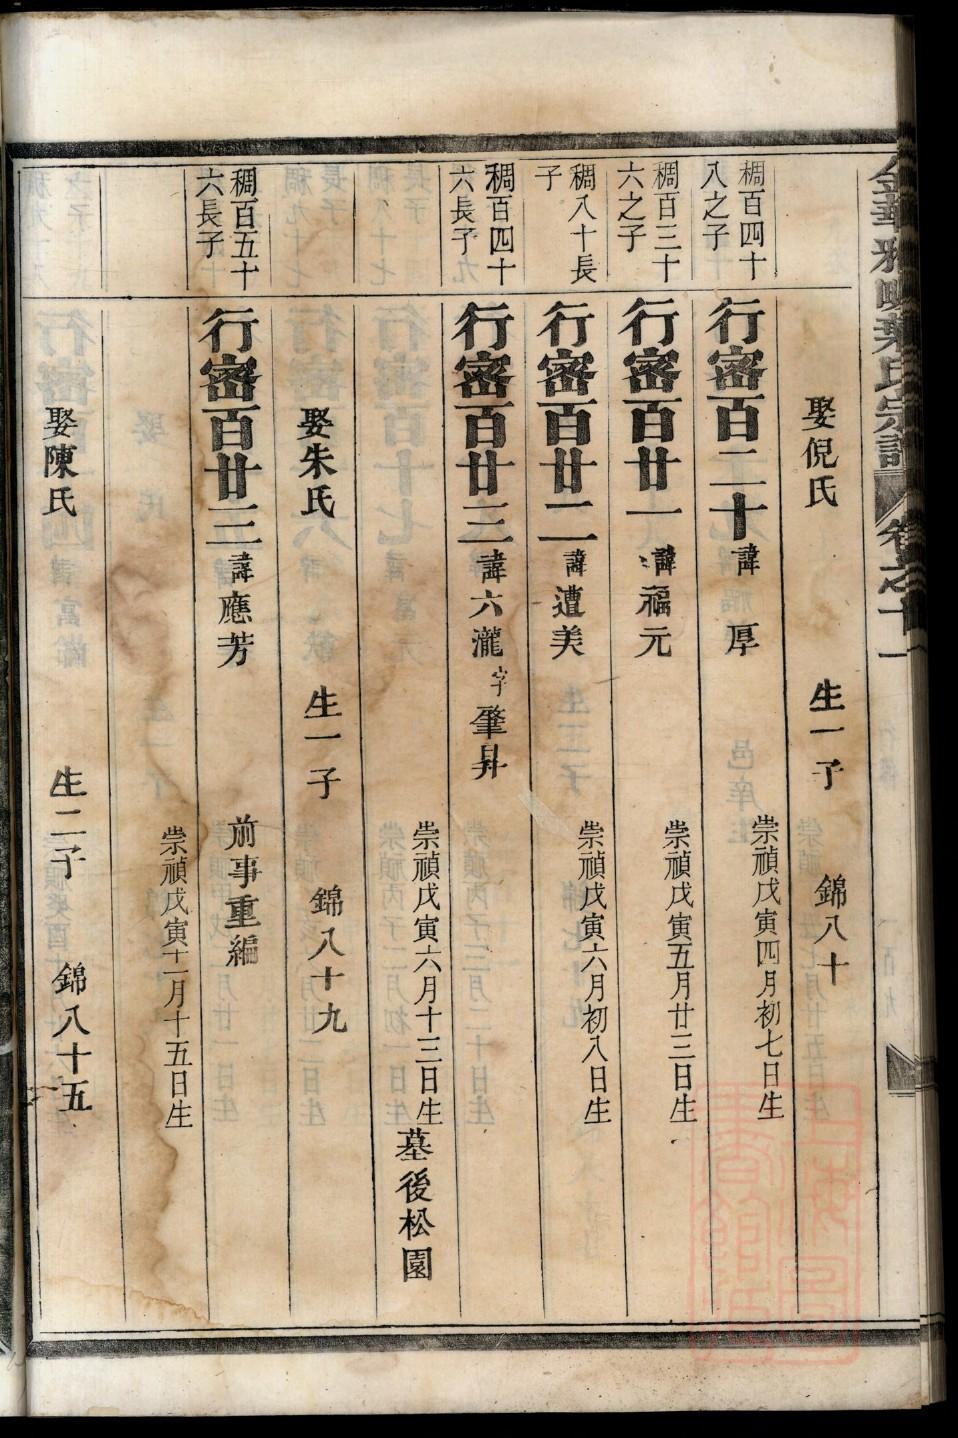 娶倪氏 生一子 錦八十
稠百四十
八之子
行密百二十 諱厚
崇禎戊寅四月初七日生
稠百三十
六之子
行密百廿一 諱福元
崇禎戊寅五月廿三日生
稠八十長
子
行密百廿二 諱遭美
崇禎戊寅六月初八日生
稠百四十
六長子
行密百廿三 諱六瀧 字肇昇
崇禎戊寅六月十三日生 墓後松園
娶朱氏 生一子 錦八十九
稠百五十
六長子
行密百廿三 諱應芳 前事重編
崇禎戊寅十一月十五日生
娶陳氏 生二子 錦八十五